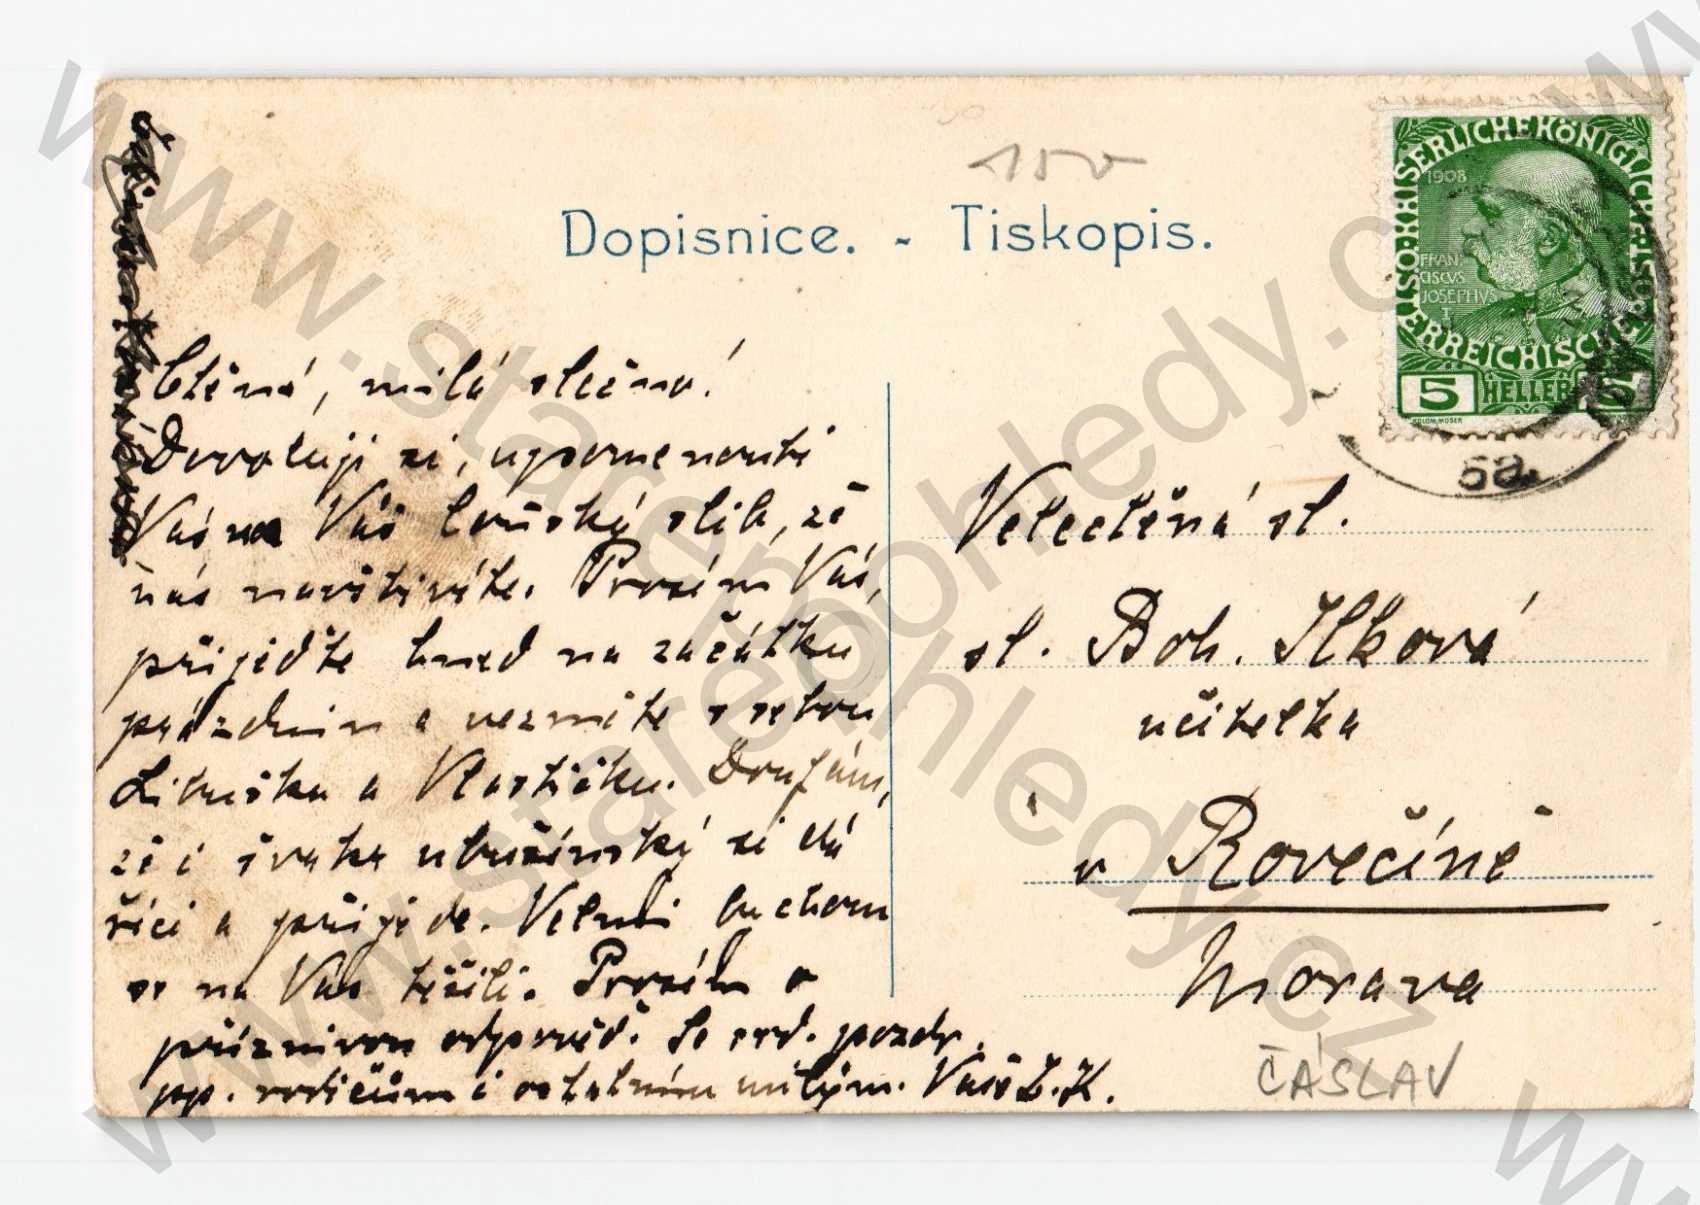 15v
Dopisnice. - Tiskopis.
KAISERLICHE KÖNIGLICHE
ÖSTERREICHISCHE
1908
FRAN
CISCVS
JOSEPHVS
I
5 HELLER 5
KOLOM. MOSER
5a.
Ctěná, milá slečno!
Dovoluji si, upomenouti
Vás na Váš loňský slib, že
nás navštívíte. Prosím Vás,
přijeďte hned na začátku
prázdnin a vezměte s sebou
Libušku a Vlastičku. Doufám,
že i švakr si dá
říci a přijede. Velmi bychom
se na Vás těšili. Prosím o
příznivou odpověď. Se srd. pozdr.
pp. rodičům i ostatním milým. Vaše Ž. K.
Velectěná sl.
sl. Boh. Ilková
učitelka
v Rovečíně
Morava
ČÁSLAV
www.starepohledy.cz
www.starepohledy.cz